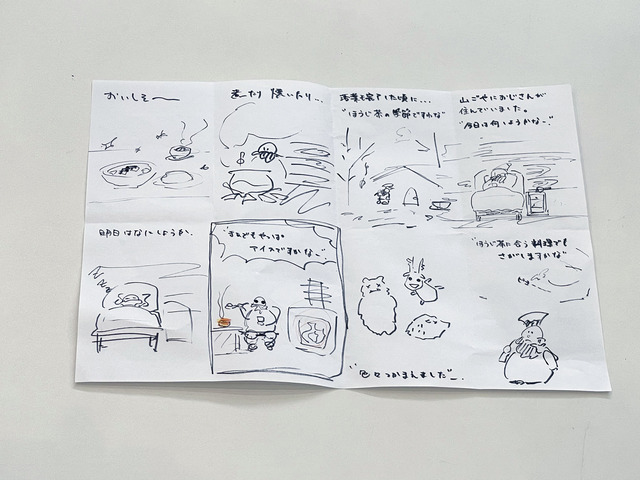 おいしそ〜
煮たり 焼いたり...
落葉も終了した頃に...
"ほうじ茶の季節ですかな"
山ごやにおじさんが
住んでいました。
"今日は何しようかな〜"
明日はなにしようか.
アイスですかな〜"
"ほうじ茶に合う料理でも
さがしますかな"
"色々つかまえました"